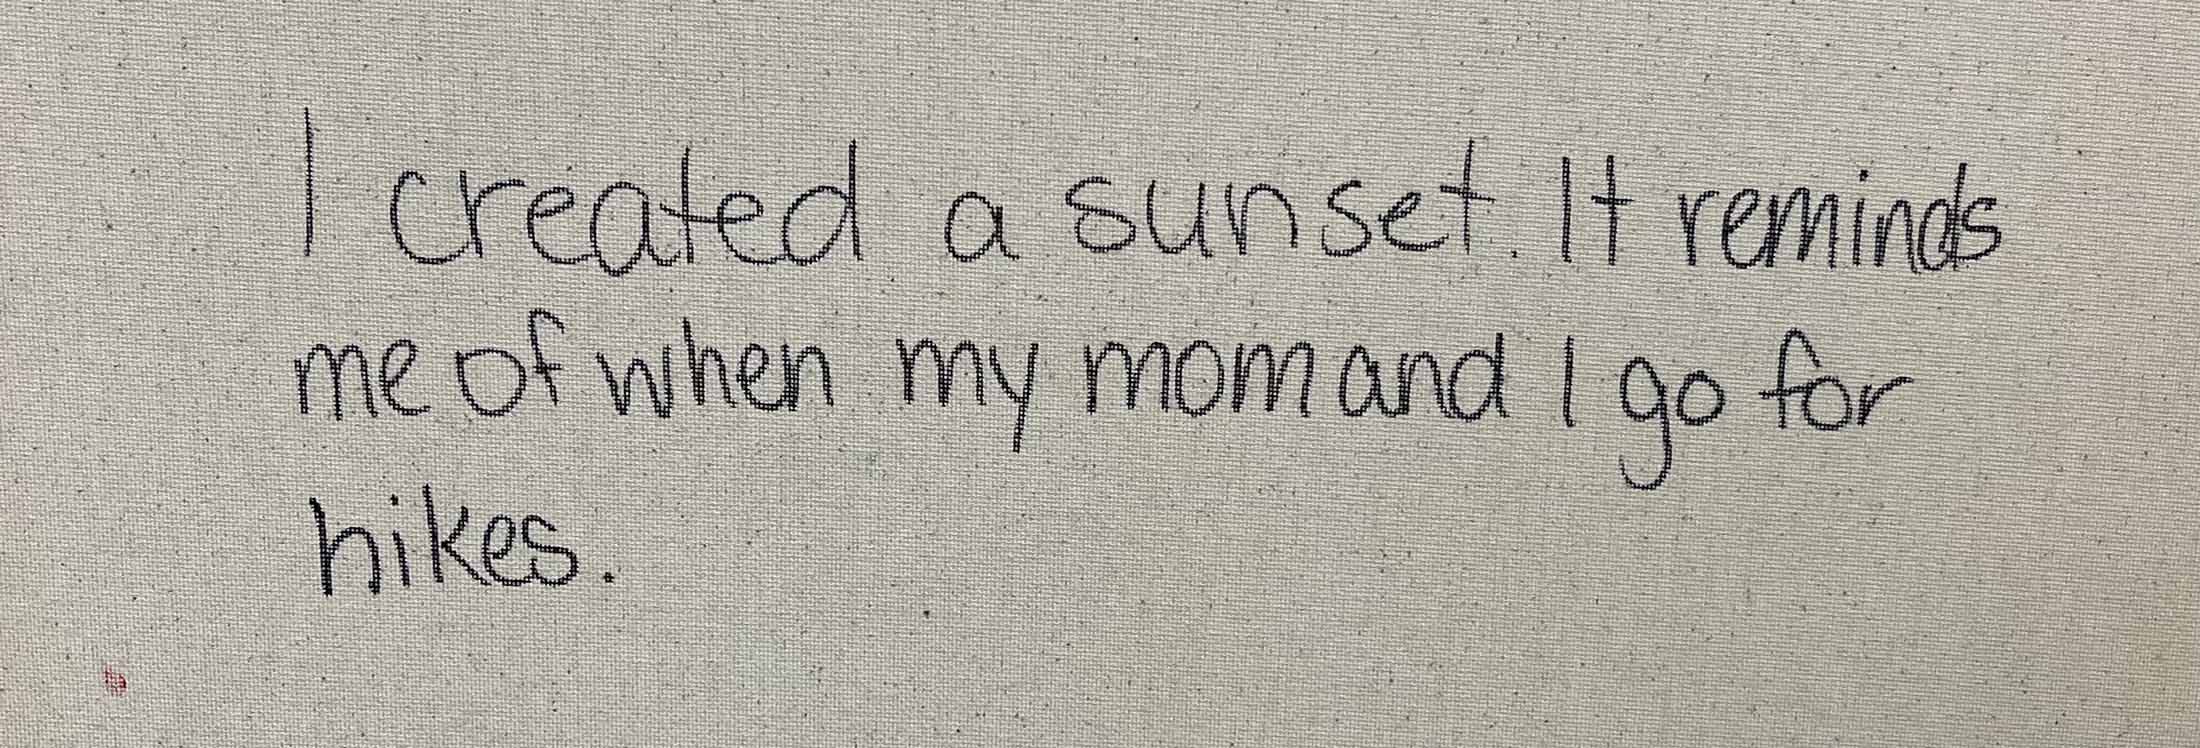 I created a sunset. It reminds
me of when my mom and I go for
hikes.